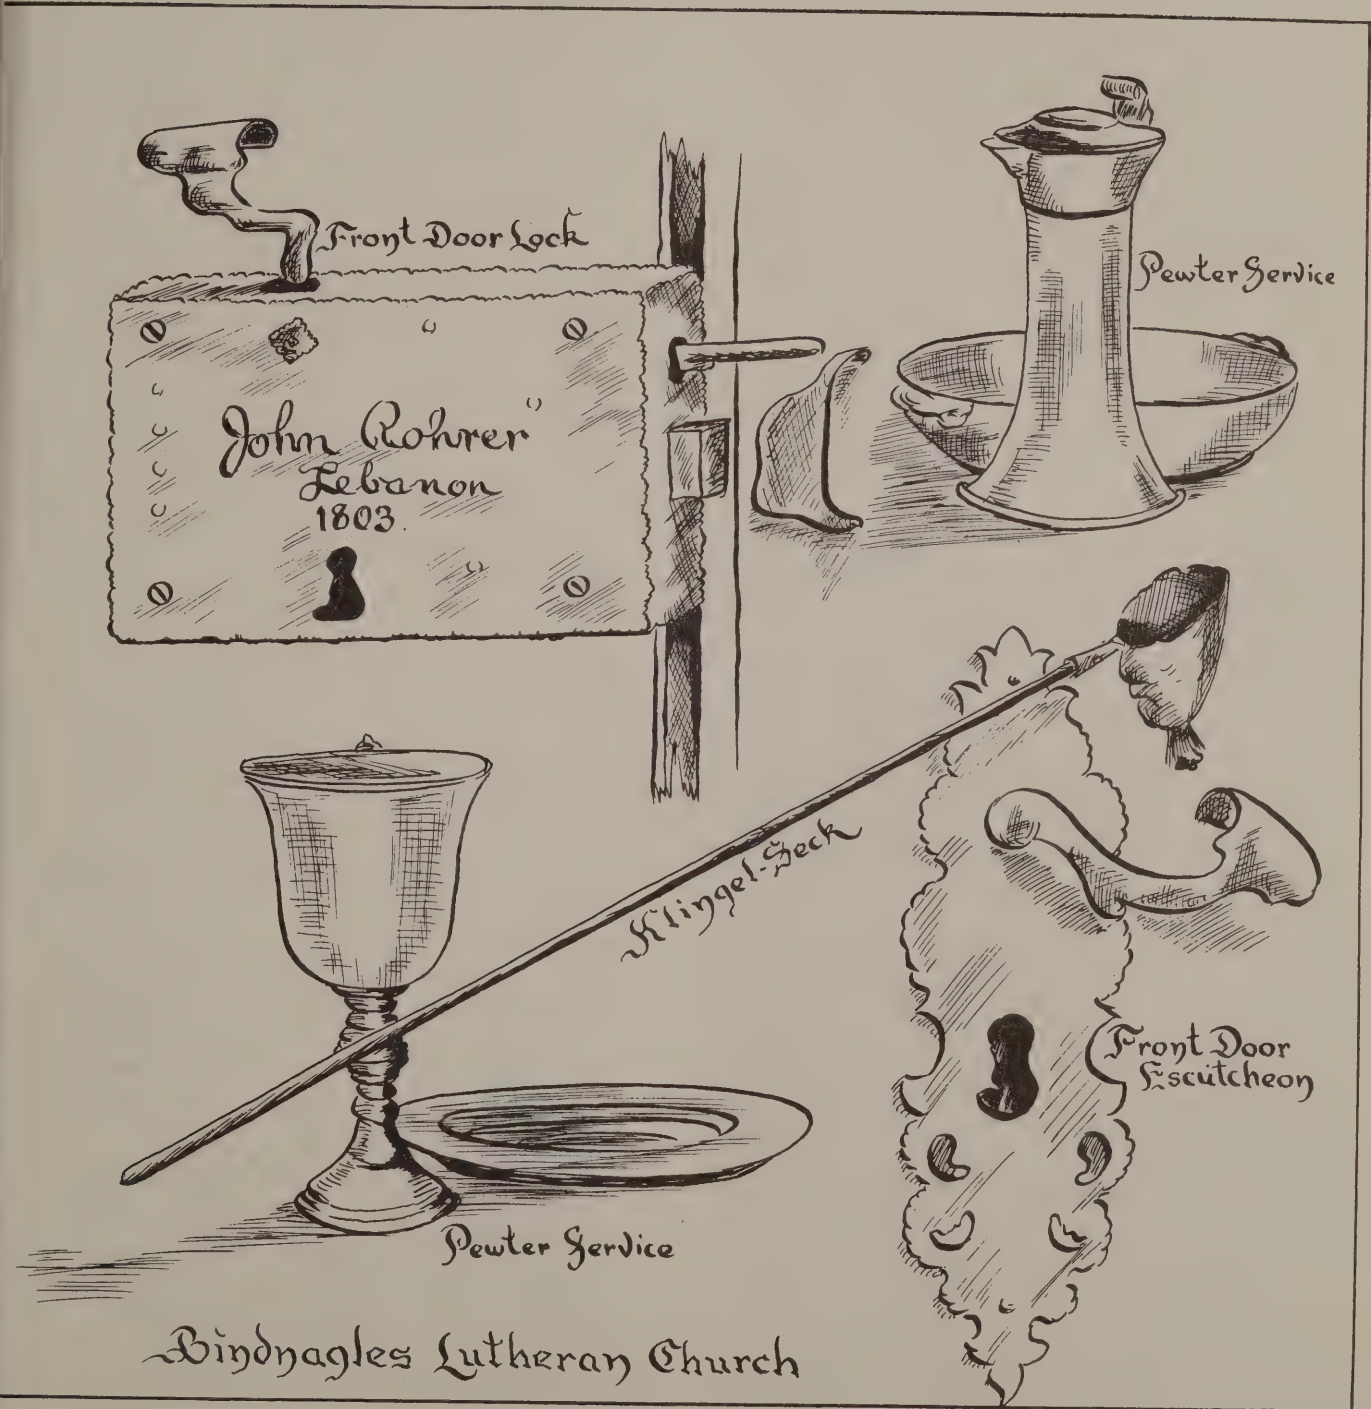 Front Door Lock
Pewter Service
John Rohrer
Lebanon
1803.
Klingel-Seck
Front Door
Escutcheon
Pewter Service
Bindnagles Lutheran Church